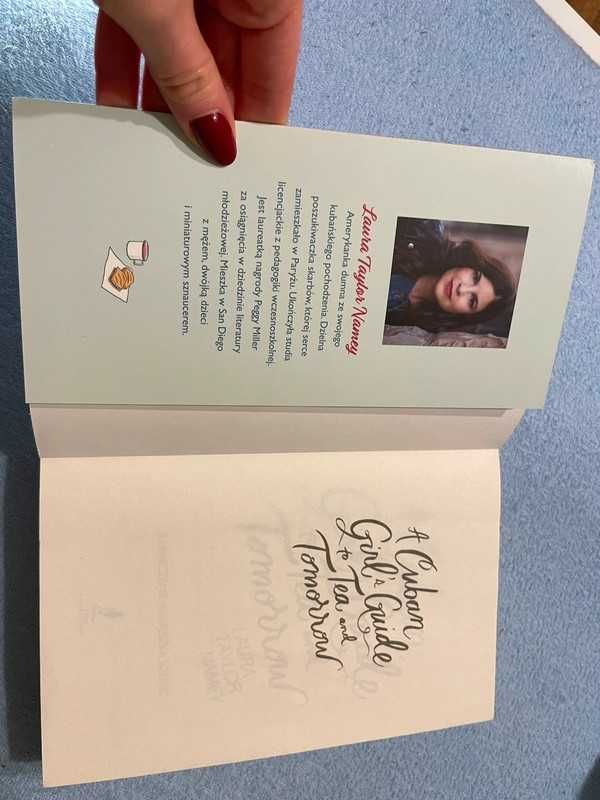 Laura Taylor Namey
Amerykanka dumna ze swojego
kubańskiego pochodzenia. Dzielna
poszukiwaczka skarbów, której serce
zamieszkało w Paryżu. Ukończyła studia
licencjackie z pedagogiki wczesnoszkolnej.
Jest laureatką nagrody Peggy Miller
za osiągnięcia w dziedzinie literatury
młodzieżowej. Mieszka w San Diego
z mężem, dwójką dzieci
i miniaturowym sznaucerem.
A Cuban
Girl's Guide
to Tea and
Tomorrow
Tomorrow
LAURA
TAYLOR
NAMEY